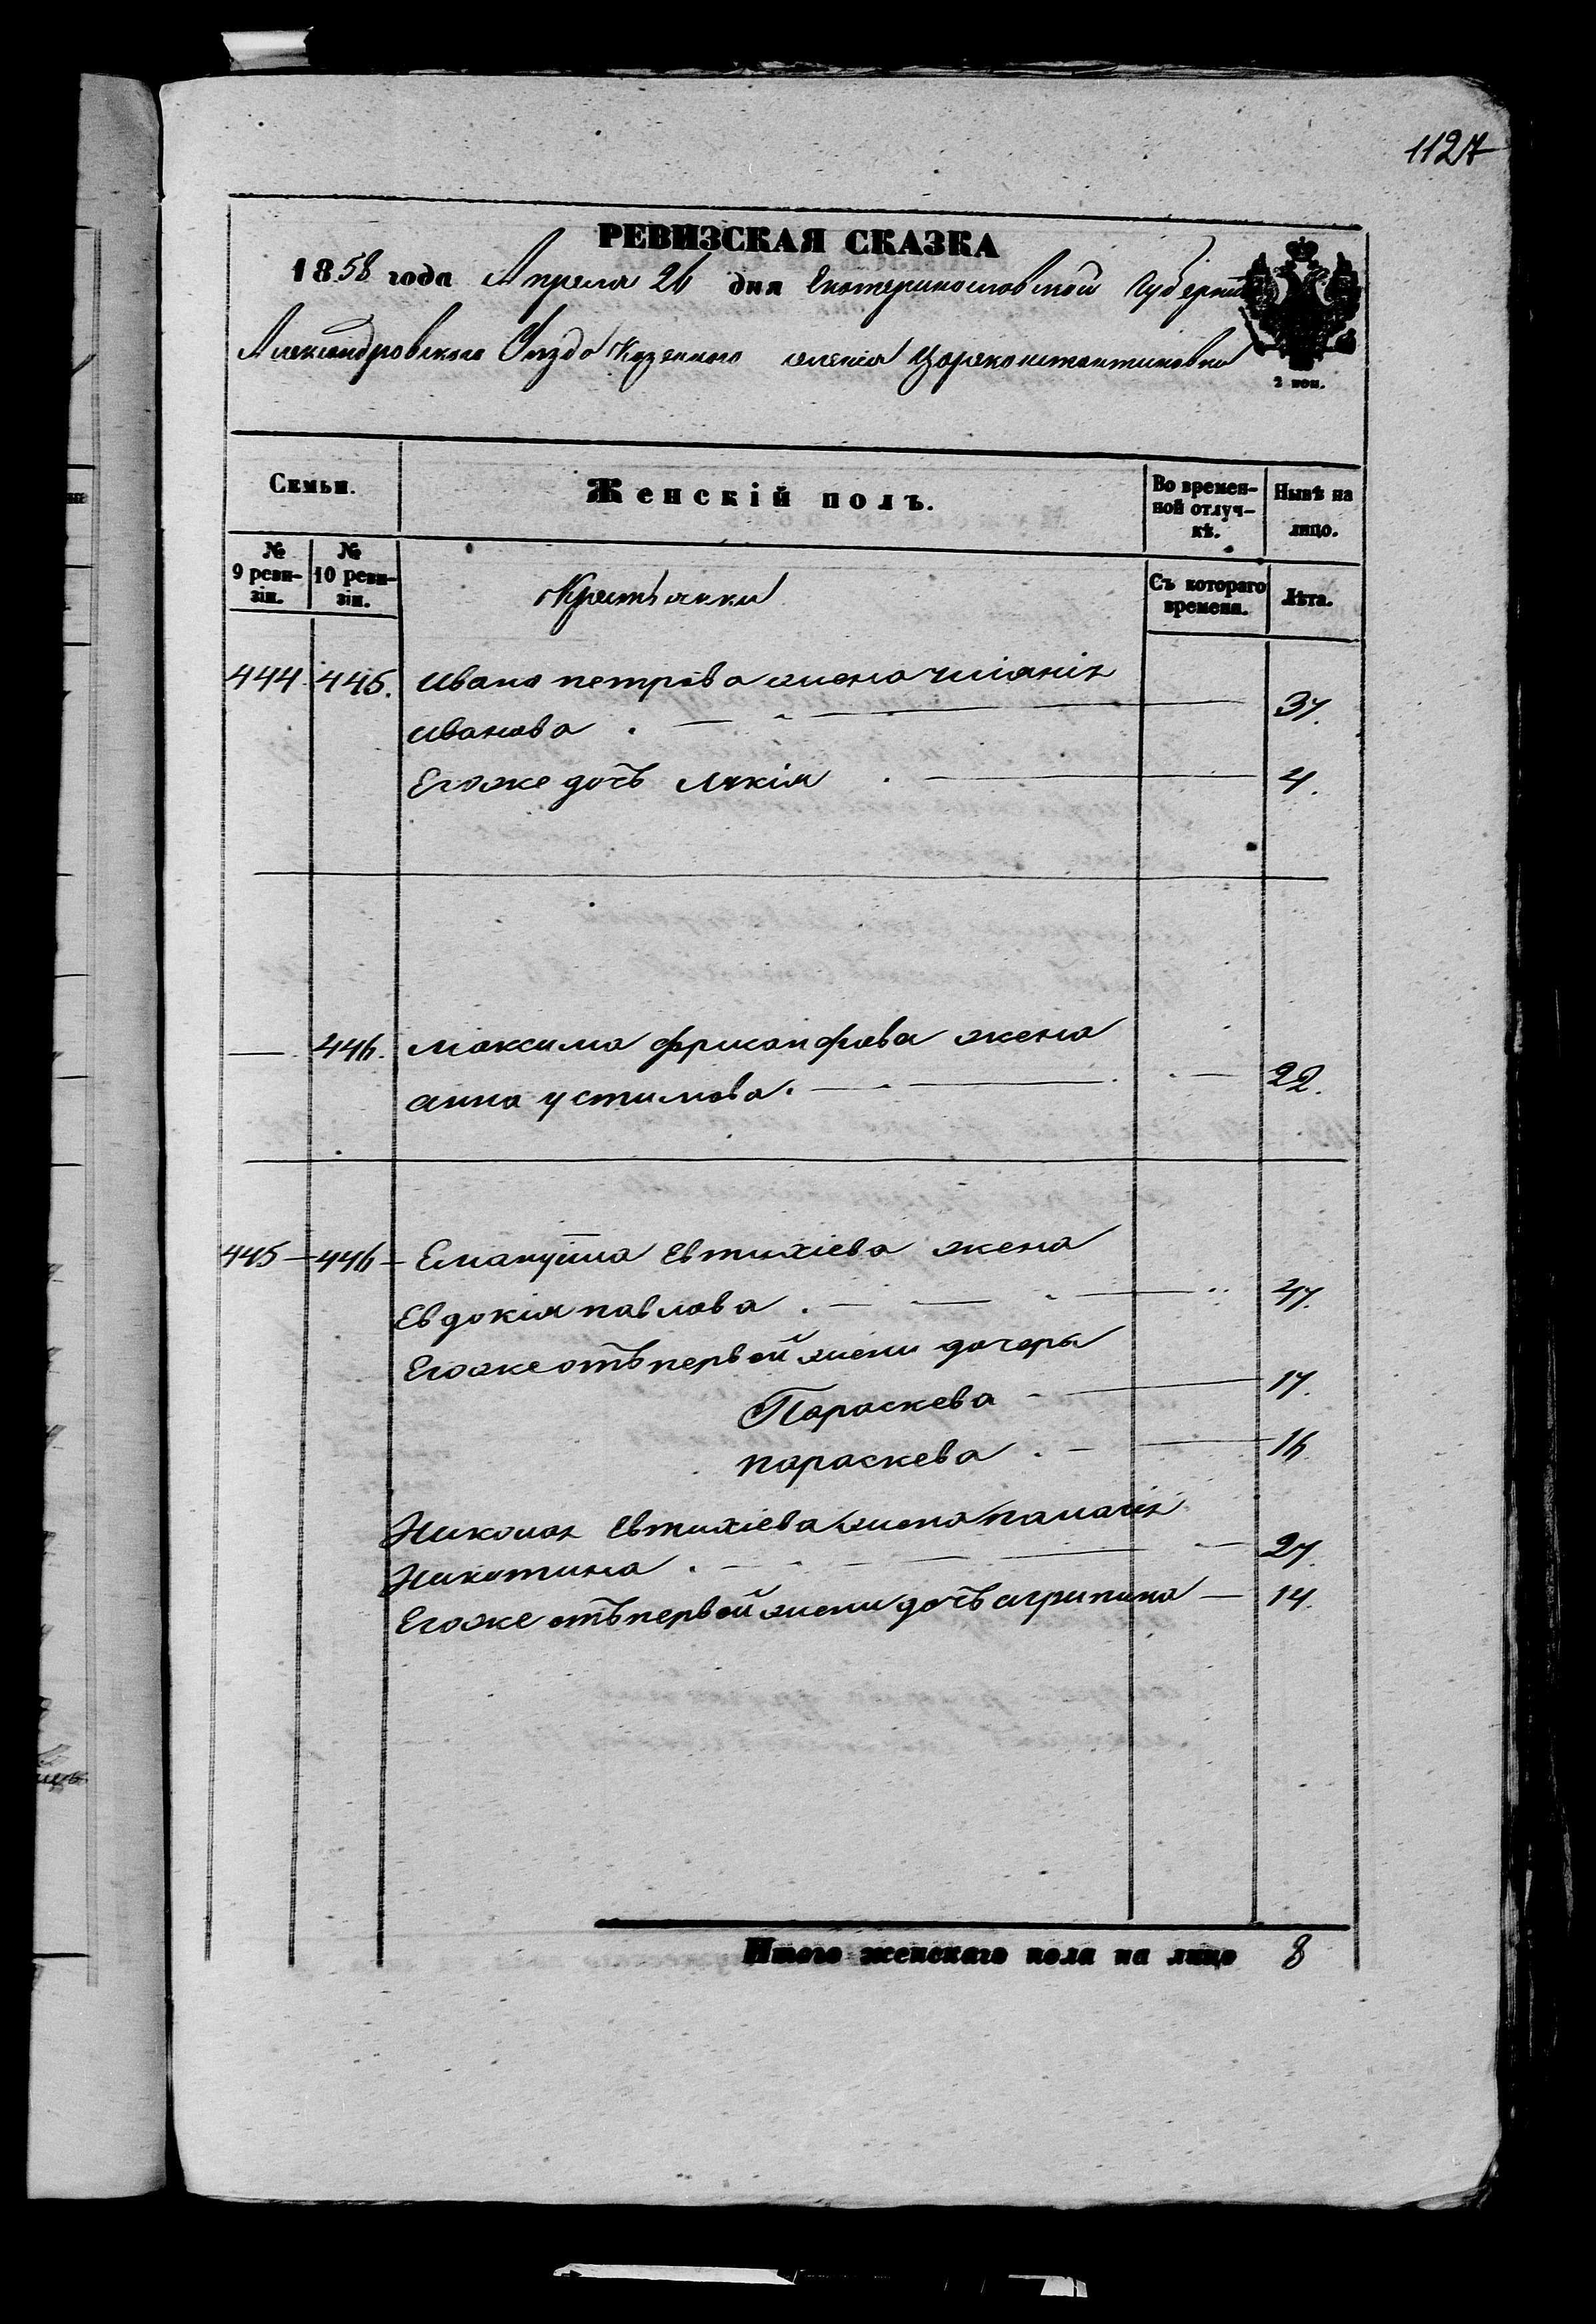 1127
РЕВИЗСКАЯ СКАЗКА
1858 года Апреля 26 дня Екатеринославской Губерніи
Александровского Уезда Казенного селенія Цареконстантиновки
2 коп.
Семьи. Женскій полъ. Во времен-ной отлуч-кѣ. Нынѣ на лицо.
№ 9 реви-зіи. № 10 реви-зіи. Крестьянки Съ котораго времени. Лѣта.
444. 445. Ивана петрова жена
иванова . 37.
Егоже дочь 4.
— . 446. Максима жена
анна устимова. 22.
445 — 446 — Емануила Евтихіева жена
Евдокія павлова . 47.
Егоже отъ первой жены дочери
Параскева 17.
параскева . 16
Николая Евтихіева жена
Никитина . 27.
Егоже отъ первой жены дочь агрипина — 14.
Итого женскаго пола на лицо 8